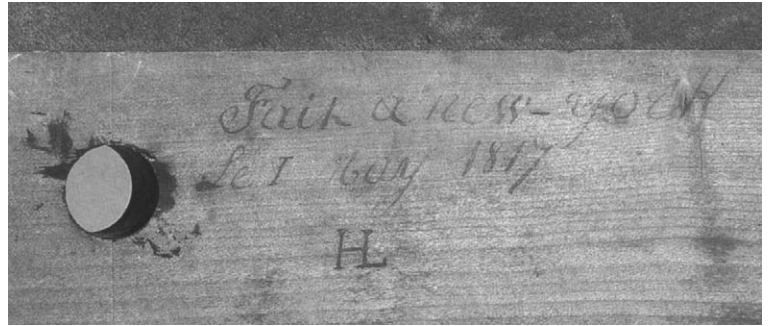 Fait a new-york
Le 1 May 1817
HL